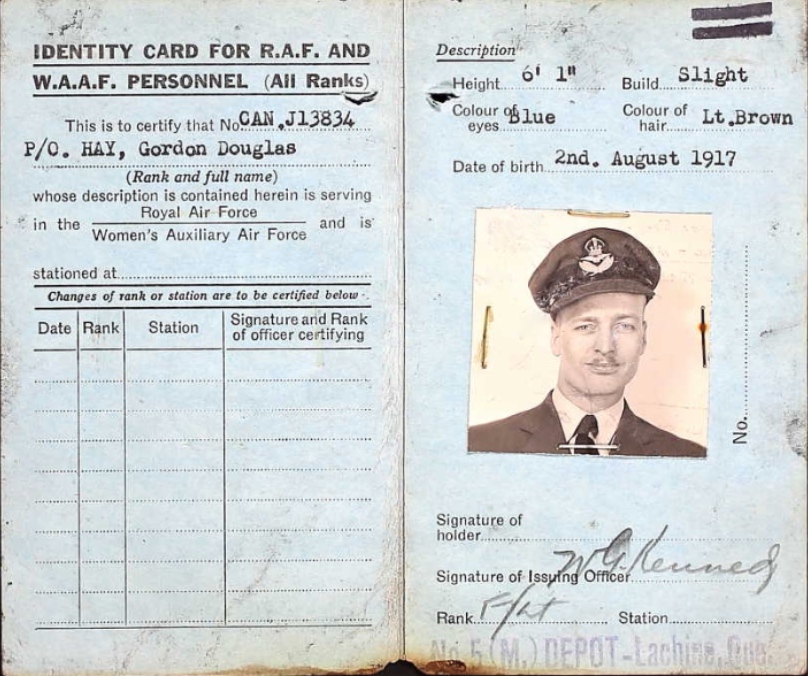 IDENTITY CARD FOR R.A.F. AND
W.A.A.F. PERSONNEL (All Ranks)
This is to certify that No. CAN.J13834
P/O. HAY, Gordon Douglas
(Rank and full name)
whose description is contained herein is serving
in the Royal Air Force
Women's Auxiliary Air Force and is
stationed at
Changes of rank or station are to be certified below.
Date Rank Station Signature and Rank
of officer certifying
Description
Height 6' 1" Build Slight
Colour of eyes Blue Colour of hair Lt.Brown
Date of birth 2nd. August 1917
No.
Signature of
holder
Signature of Issuing Officer W G. Kennedy
Rank F/Lt Station
No 5 (M.) DEPOT-Lachine, Que.